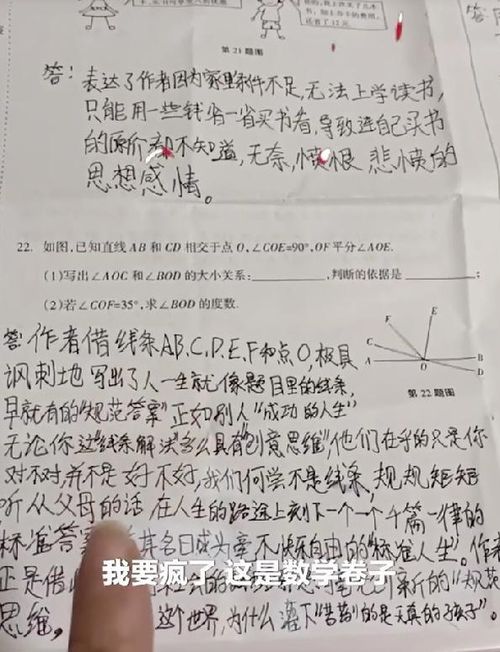 第21题图
答：表达了作者因为家里条件不足,无法上学读书,
只能用一些钱省一省买书看,导致连自己买书
的原价却不知道,无奈,愤恨 悲愤的
思想感情。
22. 如图,已知直线 AB 和 CD 相交于点 O,∠COE=90°,OF 平分∠AOE.
(1)写出∠AOC 和∠BOD 的大小关系:________,判断的依据是________;
(2)若∠COF=35°,求∠BOD 的度数.
F
E
C
A
O
B
D
第22题图
答:作者借线条AB、C、D、E、F和点O,极具
讽刺地 写出了人一生就像题目里的线条,
早就有的"规范答案"正如别人"成功的人生"
无论你这"线条解法"多么具有"创意思维",他们在乎的只是你
对不对,并不是好不好,我们何尝不是线条,规规矩矩
听从父母的话,在人生的路途上刻下一个一个千篇一律的
标准答案
其名曰成为
不快乐自由的"标准人生"。作者
正是借
思维。
这个世界,为什么
的是天真的孩子"。
我要疯了 这是数学卷子